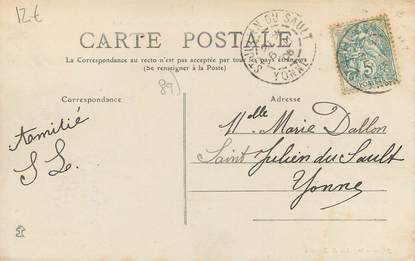 12€
CARTE POSTALE
La Correspondance au recto n'est pas acceptée par tous les pays étrangers
(Se renseigner à la Poste)
ST JULIEN DU SAULT
YONNE
5
89)
Correspondance
Adresse
Amitié
S L.
Mlle Marie Dallon
Saint Julien du Sault
Yonne